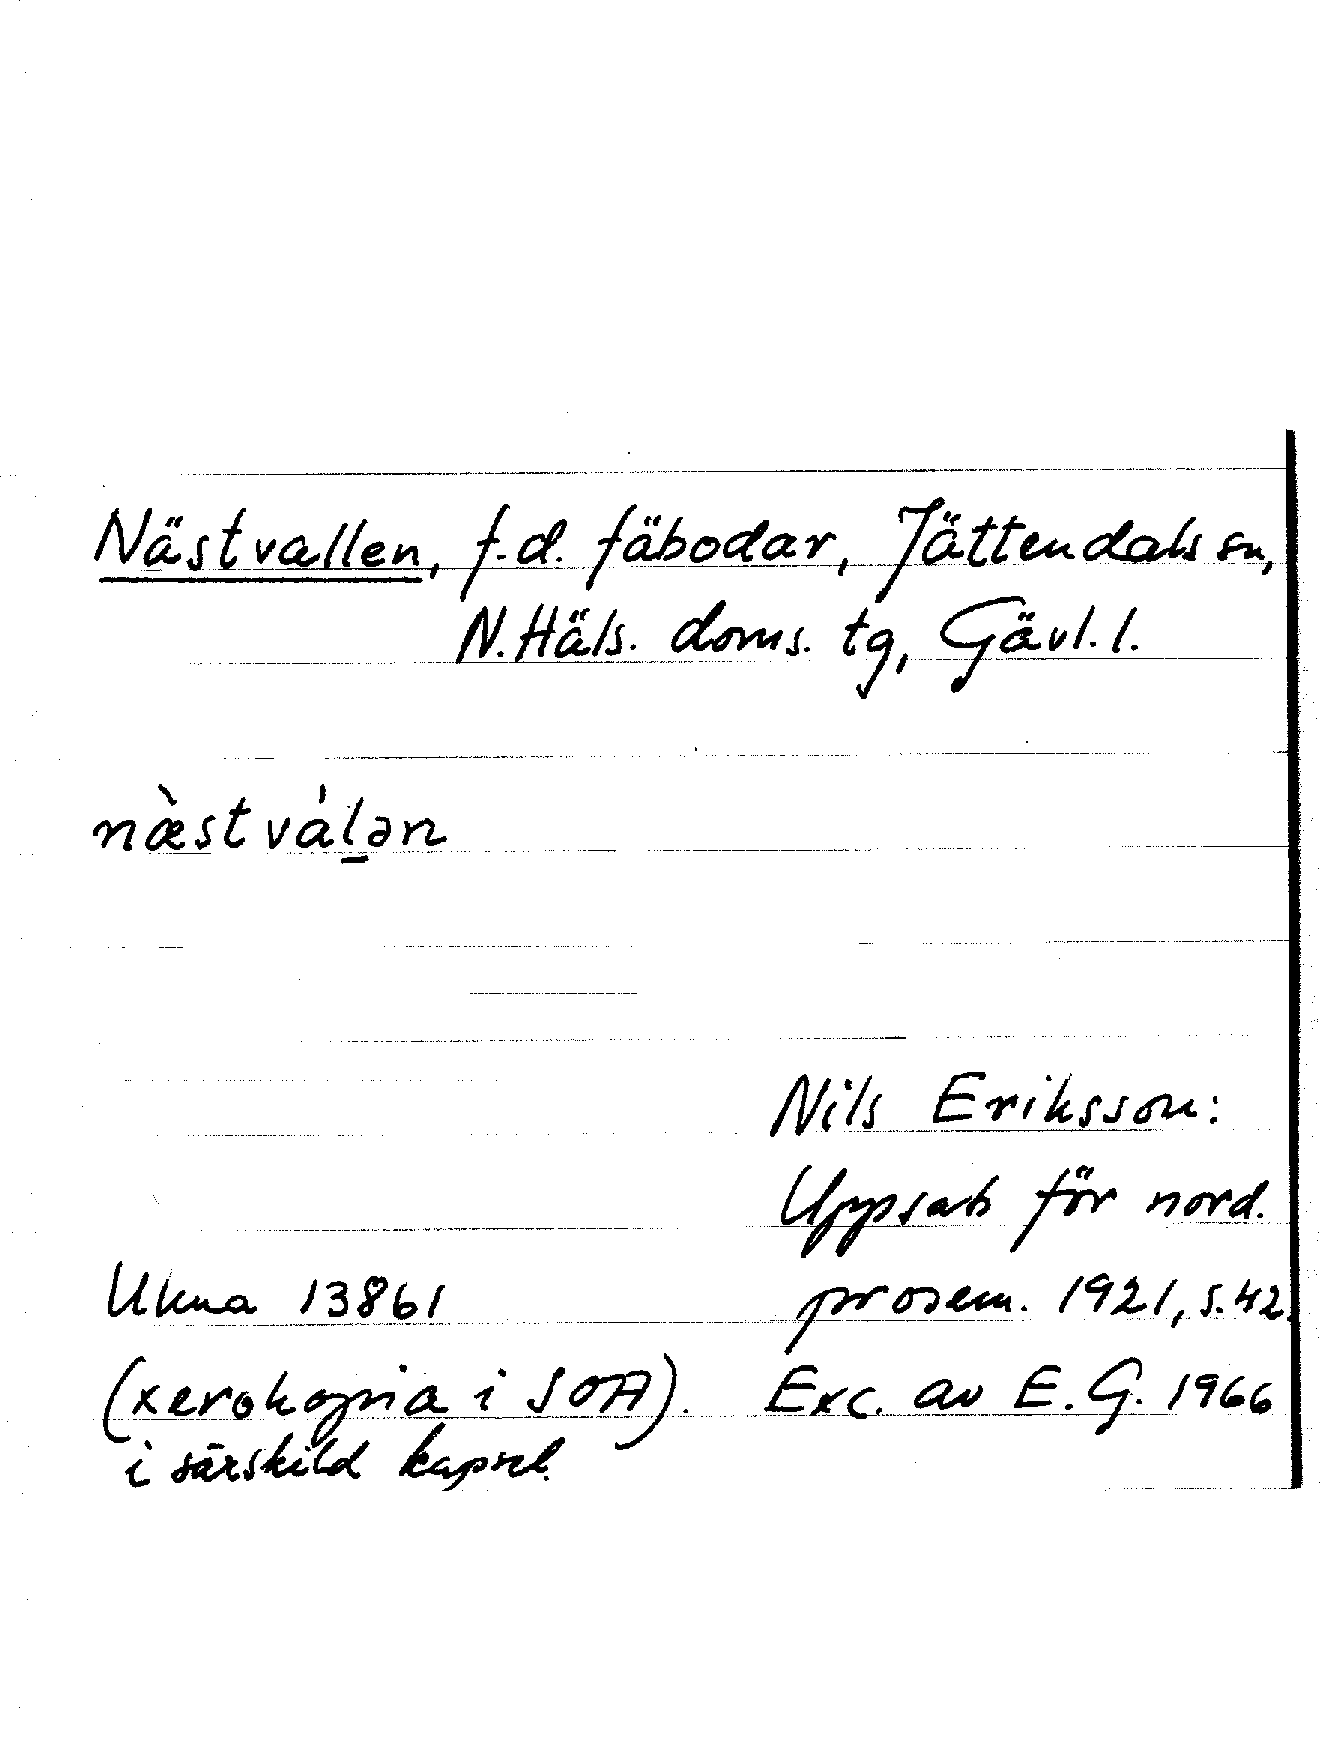 Nästvallen, f.d. fäbodar, Jättendals sn,
N. Häls. doms. tg, Gävl. l.
næ̀stvàl̠ən
Nils Eriksson:
Uppsats för nord.
Ukna 13861 prosem. 1921, s. 42.
(xerokopia i SOA). Exc. av E. G. 1966
i särskild kapsel.